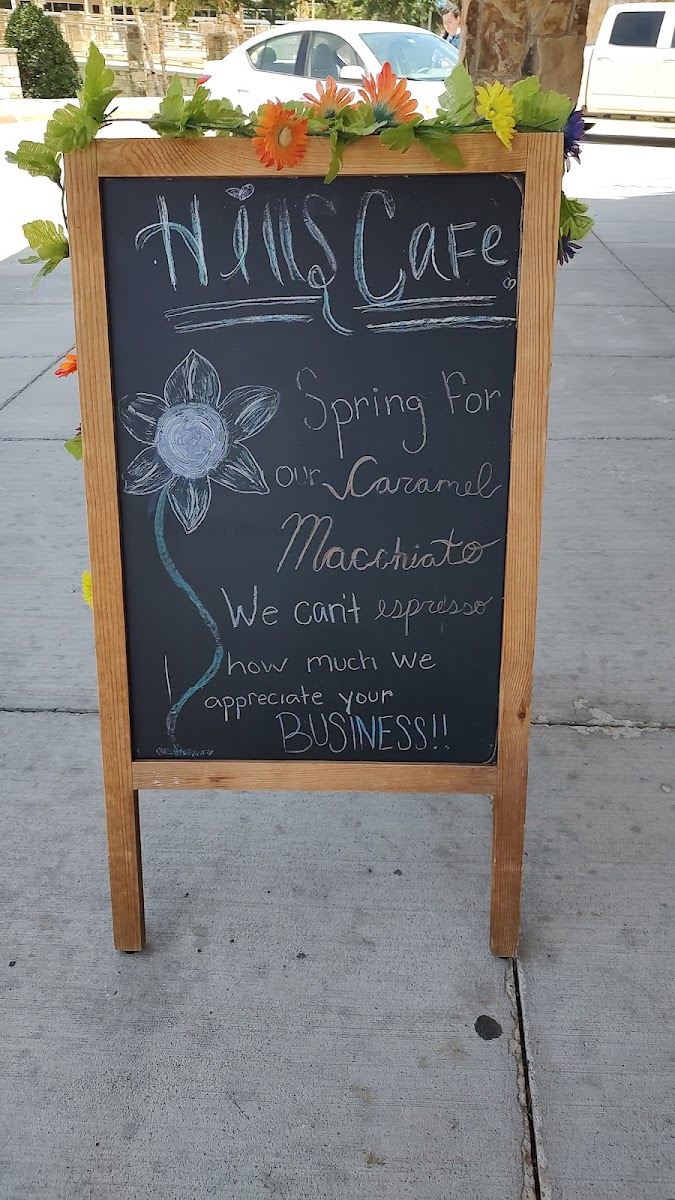 Hills Cafe
Spring For
our Caramel
Macchiato
We can't espresso
how much we
appreciate your
BUSINESS!!